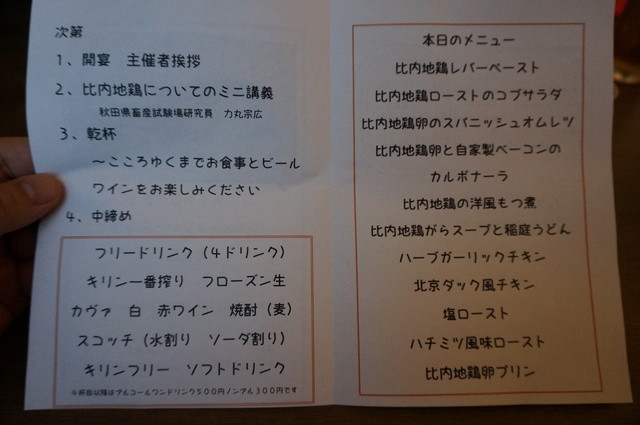 次第
1、開宴 主催者挨拶
2、比内地鶏についてのミニ講義
秋田県畜産試験場研究員 力丸宗広
3、乾杯
～こころゆくまでお食事とビール
ワインをお楽しみください
4、中締め
フリードリンク(4ドリンク)
キリン一番搾り フローズン生
カヴァ 白 赤ワイン 焼酎(麦)
スコッチ(水割り ソーダ割り)
キリンフリー ソフトドリンク
杯目以降はアルコールワンドリンク500円ノンアル300円です
本日のメニュー
比内地鶏レバーペースト
比内地鶏ローストのコブサラダ
比内地鶏卵のスパニッシュオムレツ
比内地鶏卵と自家製ベーコンの
カルボナーラ
比内地鶏の洋風もつ煮
比内地鶏がらスープと稲庭うどん
ハーブガーリックチキン
北京ダック風チキン
塩ロースト
ハチミツ風味ロースト
比内地鶏卵プリン